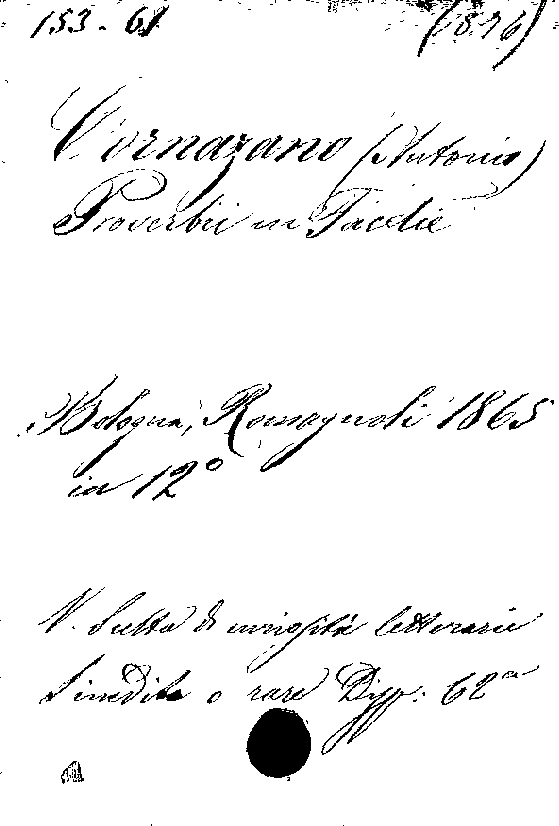 153.61 (1876)
Cornazano (Antonio)
Proverbii in Facetie
Bologna, Romagnoli 1865
in 12°
V. Scelta di curiosità letterarie
inedite o rare Disp: 62ª